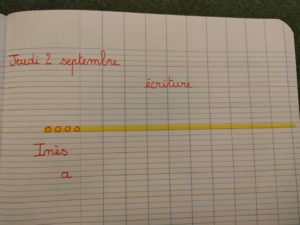 Jeudi 2 septembre
écriture
o o o o
Inès
a